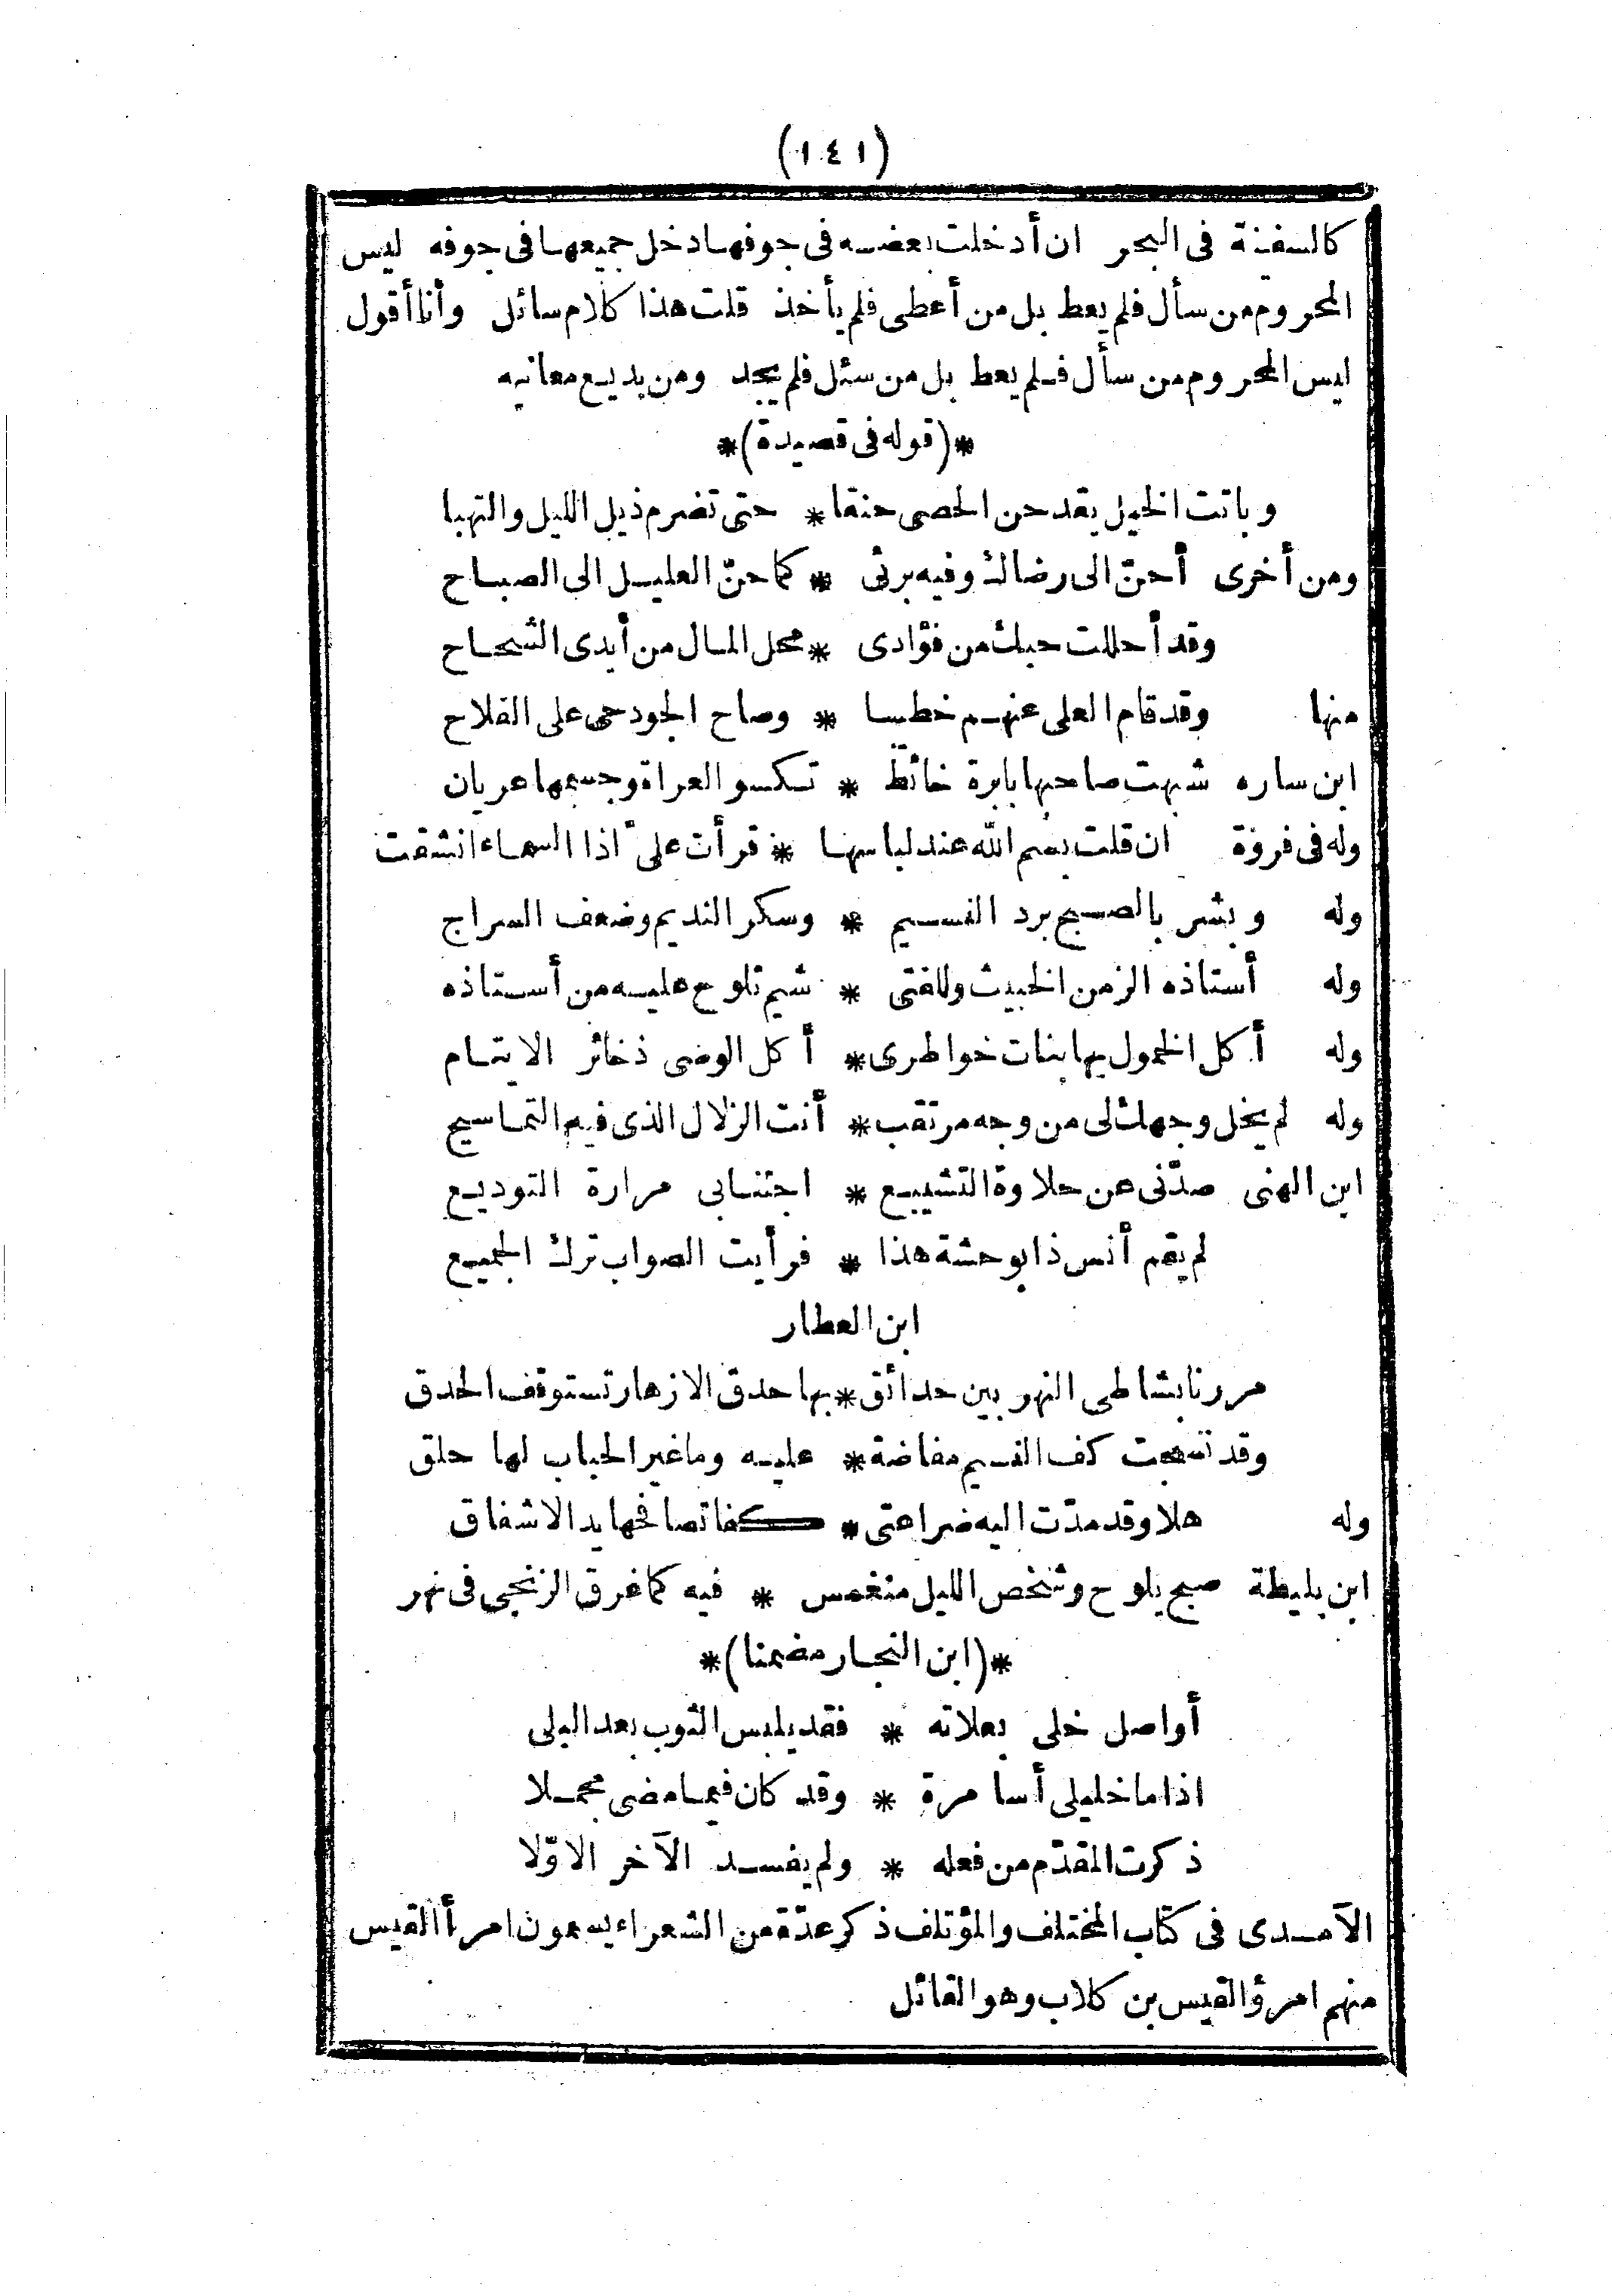 (١٤١)
كالسفينة فى البحر ان أدخلت بعضه فى جوفها دخل جميعها فى جوفه ليس
المحروم من سأل فلم يعط بل من أعطى فلم يأخذ قلت هذا كلام سائل وأنا أقول
ليس المحروم من سأل فلم يعط بل من سئل فلم يجد ومن بديع معانيه
*(قوله فى قصيدة)*
وباتت الخيل يقدحن الحصى حنقا * حتى تضرم ذيل الليل والتهبا
ومن أخرى أحنّ الى رضاك وفيه برئى * كما حنّ العليل الى الصباح
وقد أحللت حبك من فؤادى * محل المال من أيدى الشحاح
منها وقد قام العلى عنهم خطيبا * وصاح الجود حى على الفلاح
ابن ساره شبهت صاحبها بابرة خائط * تكسو العراة وجسمها عريان
وله فى فروة ان قلت بسم الله عند لباسها * قرأت علىّ اذا السماء انشقت
وله وبشر بالصبح برد النسيم * وسكر النديم وضعف السراج
وله أستاذه الزمن الخبيث وللفتى * شيم تلوح عليه من أستاذه
وله أكل الخمول بها بنات خواطرى * أكل الوصى ذخائر الايتام
وله لم يخل وجهك لى من وجه مرتقب * أنت الزلال الذى فيه التماسيح
ابن الهنى صدّنى عن حلاوة التشييع * اجتنابى مرارة التوديع
لم يقم أنس ذا بوحشة هذا * فرأيت الصواب ترك الجميع
ابن العطار
مررنا بشاطى النهر بين حدائق * بها حدق الازهار تستوقف الحدق
وقد نسجت كف النسيم مفاضة * عليه وما غير الحباب لها حلق
وله هلا وقد مدّت اليه ضراعتى * كفا تصافحها يد الاشفاق
ابن بليطة صبح يلوح وشخص الليل منغمس * فيه كما غرق الزنجى فى نهر
*(ابن النجار مضمنا)*
أواصل خلى بعلاته * فقد يلبس الثوب بعد البلى
اذا ما خليلى أسا مرة * وقد كان فيما مضى مجملا
ذكرت المقدّم من فعله * ولم يفسد الآخر الاوّلا
الآمدى فى كتاب المختلف والمؤتلف ذكر عدّة من الشعراء يسمون امرأ القيس
منهم امرؤ القيس بن كلاب وهو القائل